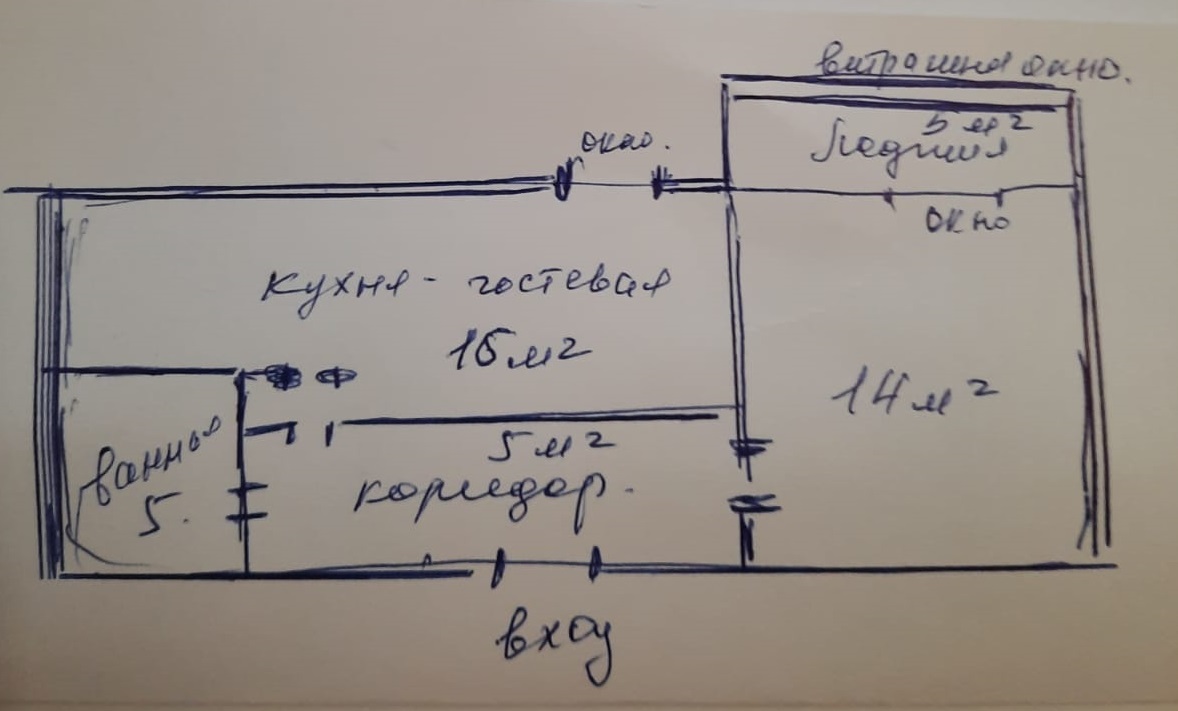 витражное окно.
окно.
5 м²
Лоджия
окно
кухня - гостевая
16 м²
14 м²
ванная
5.
5 м²
коридор.
вход